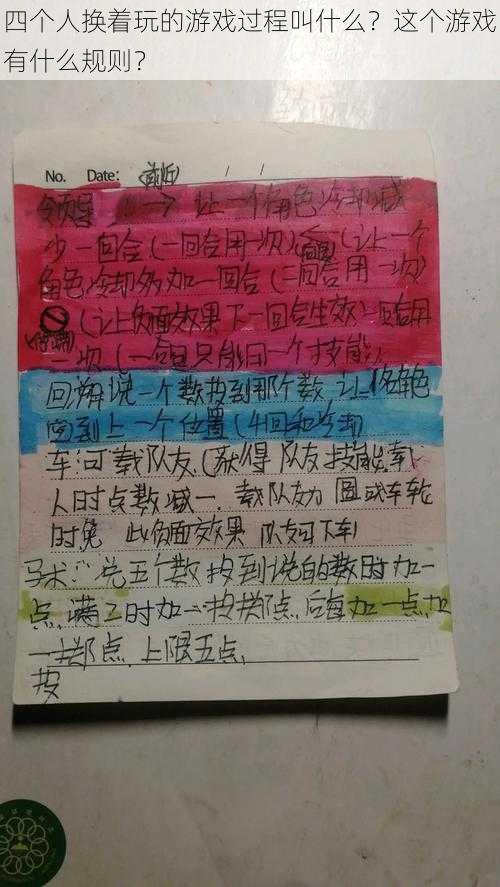 四个人换着玩的游戏过程叫什么？这个游戏
有什么规则？
No. Date: / /
→ 让一个角色冷却减
少一回合(一回合用一次) (让一个
角色冷却多加一回合(三回合用一次)
(让负面效果下一回合生效)一回合用
一次(一回合只能用一个技能)
回 说一个数投到那个数 让 角色
回到上一个位置(4回合冷却)
车:可载队友(获得队友技能,载
人时点数减一,载队友为 圆或车轮
时免 此负面效果 队友可下车)
马术:说五个数,投到说的数时加一
点,满 时加一 掷点,后每加一点,加
一 掷点,上限五点,
投